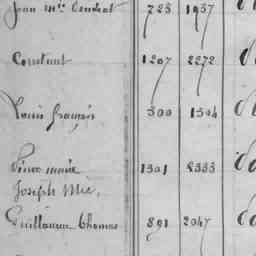 Jean Mie 728 1937
Constant 1207 2272
Louis françois 300 1504
Pierre marie 1301 2333
Joseph Mie,
Guillaume Thomas 891 2047